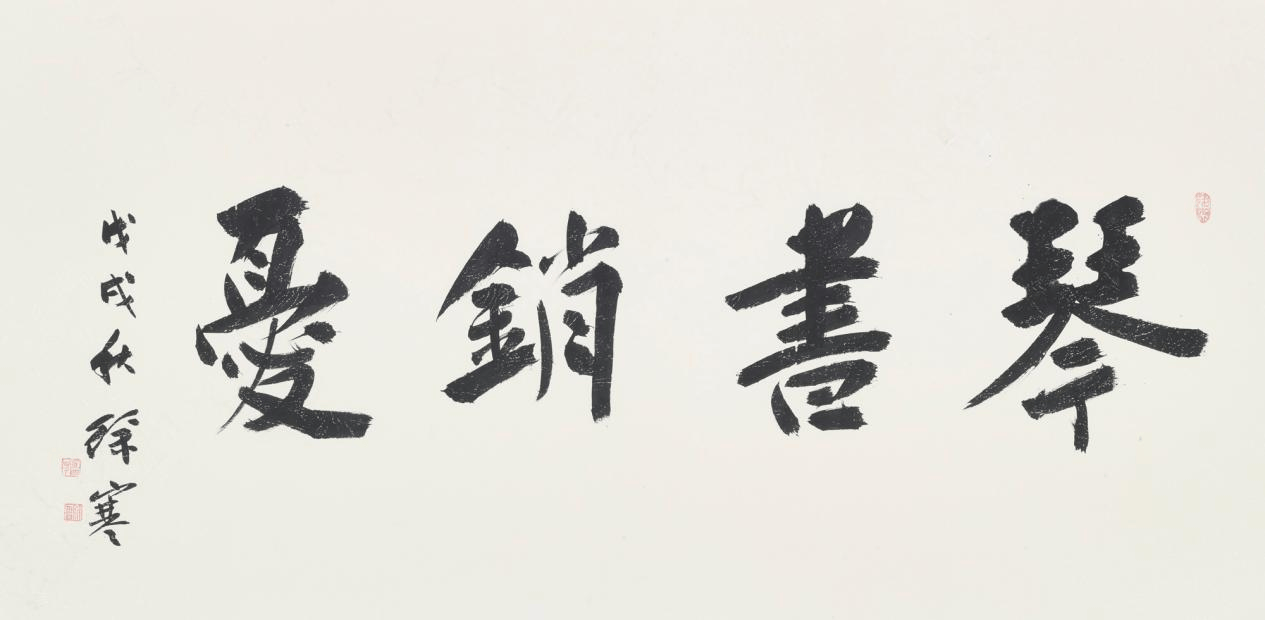 琴書銷憂
戊戌秋 徐寒